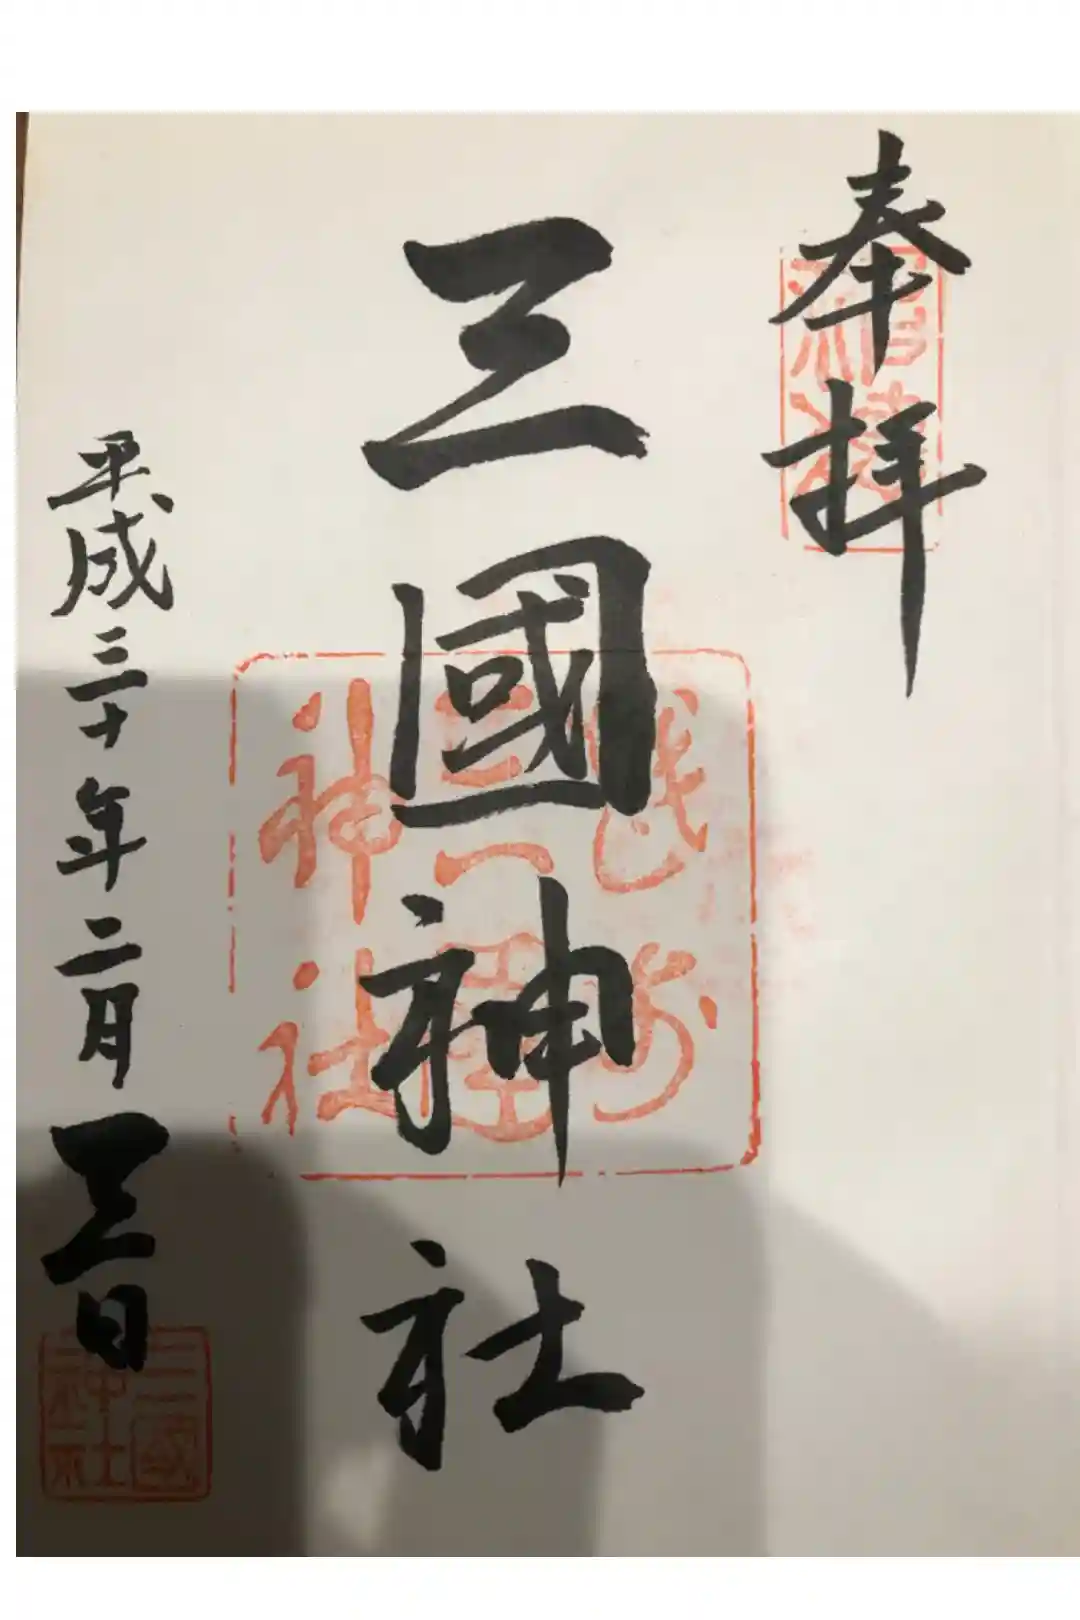 奉拝
三國神社
平成三十年二月三日
三国神社